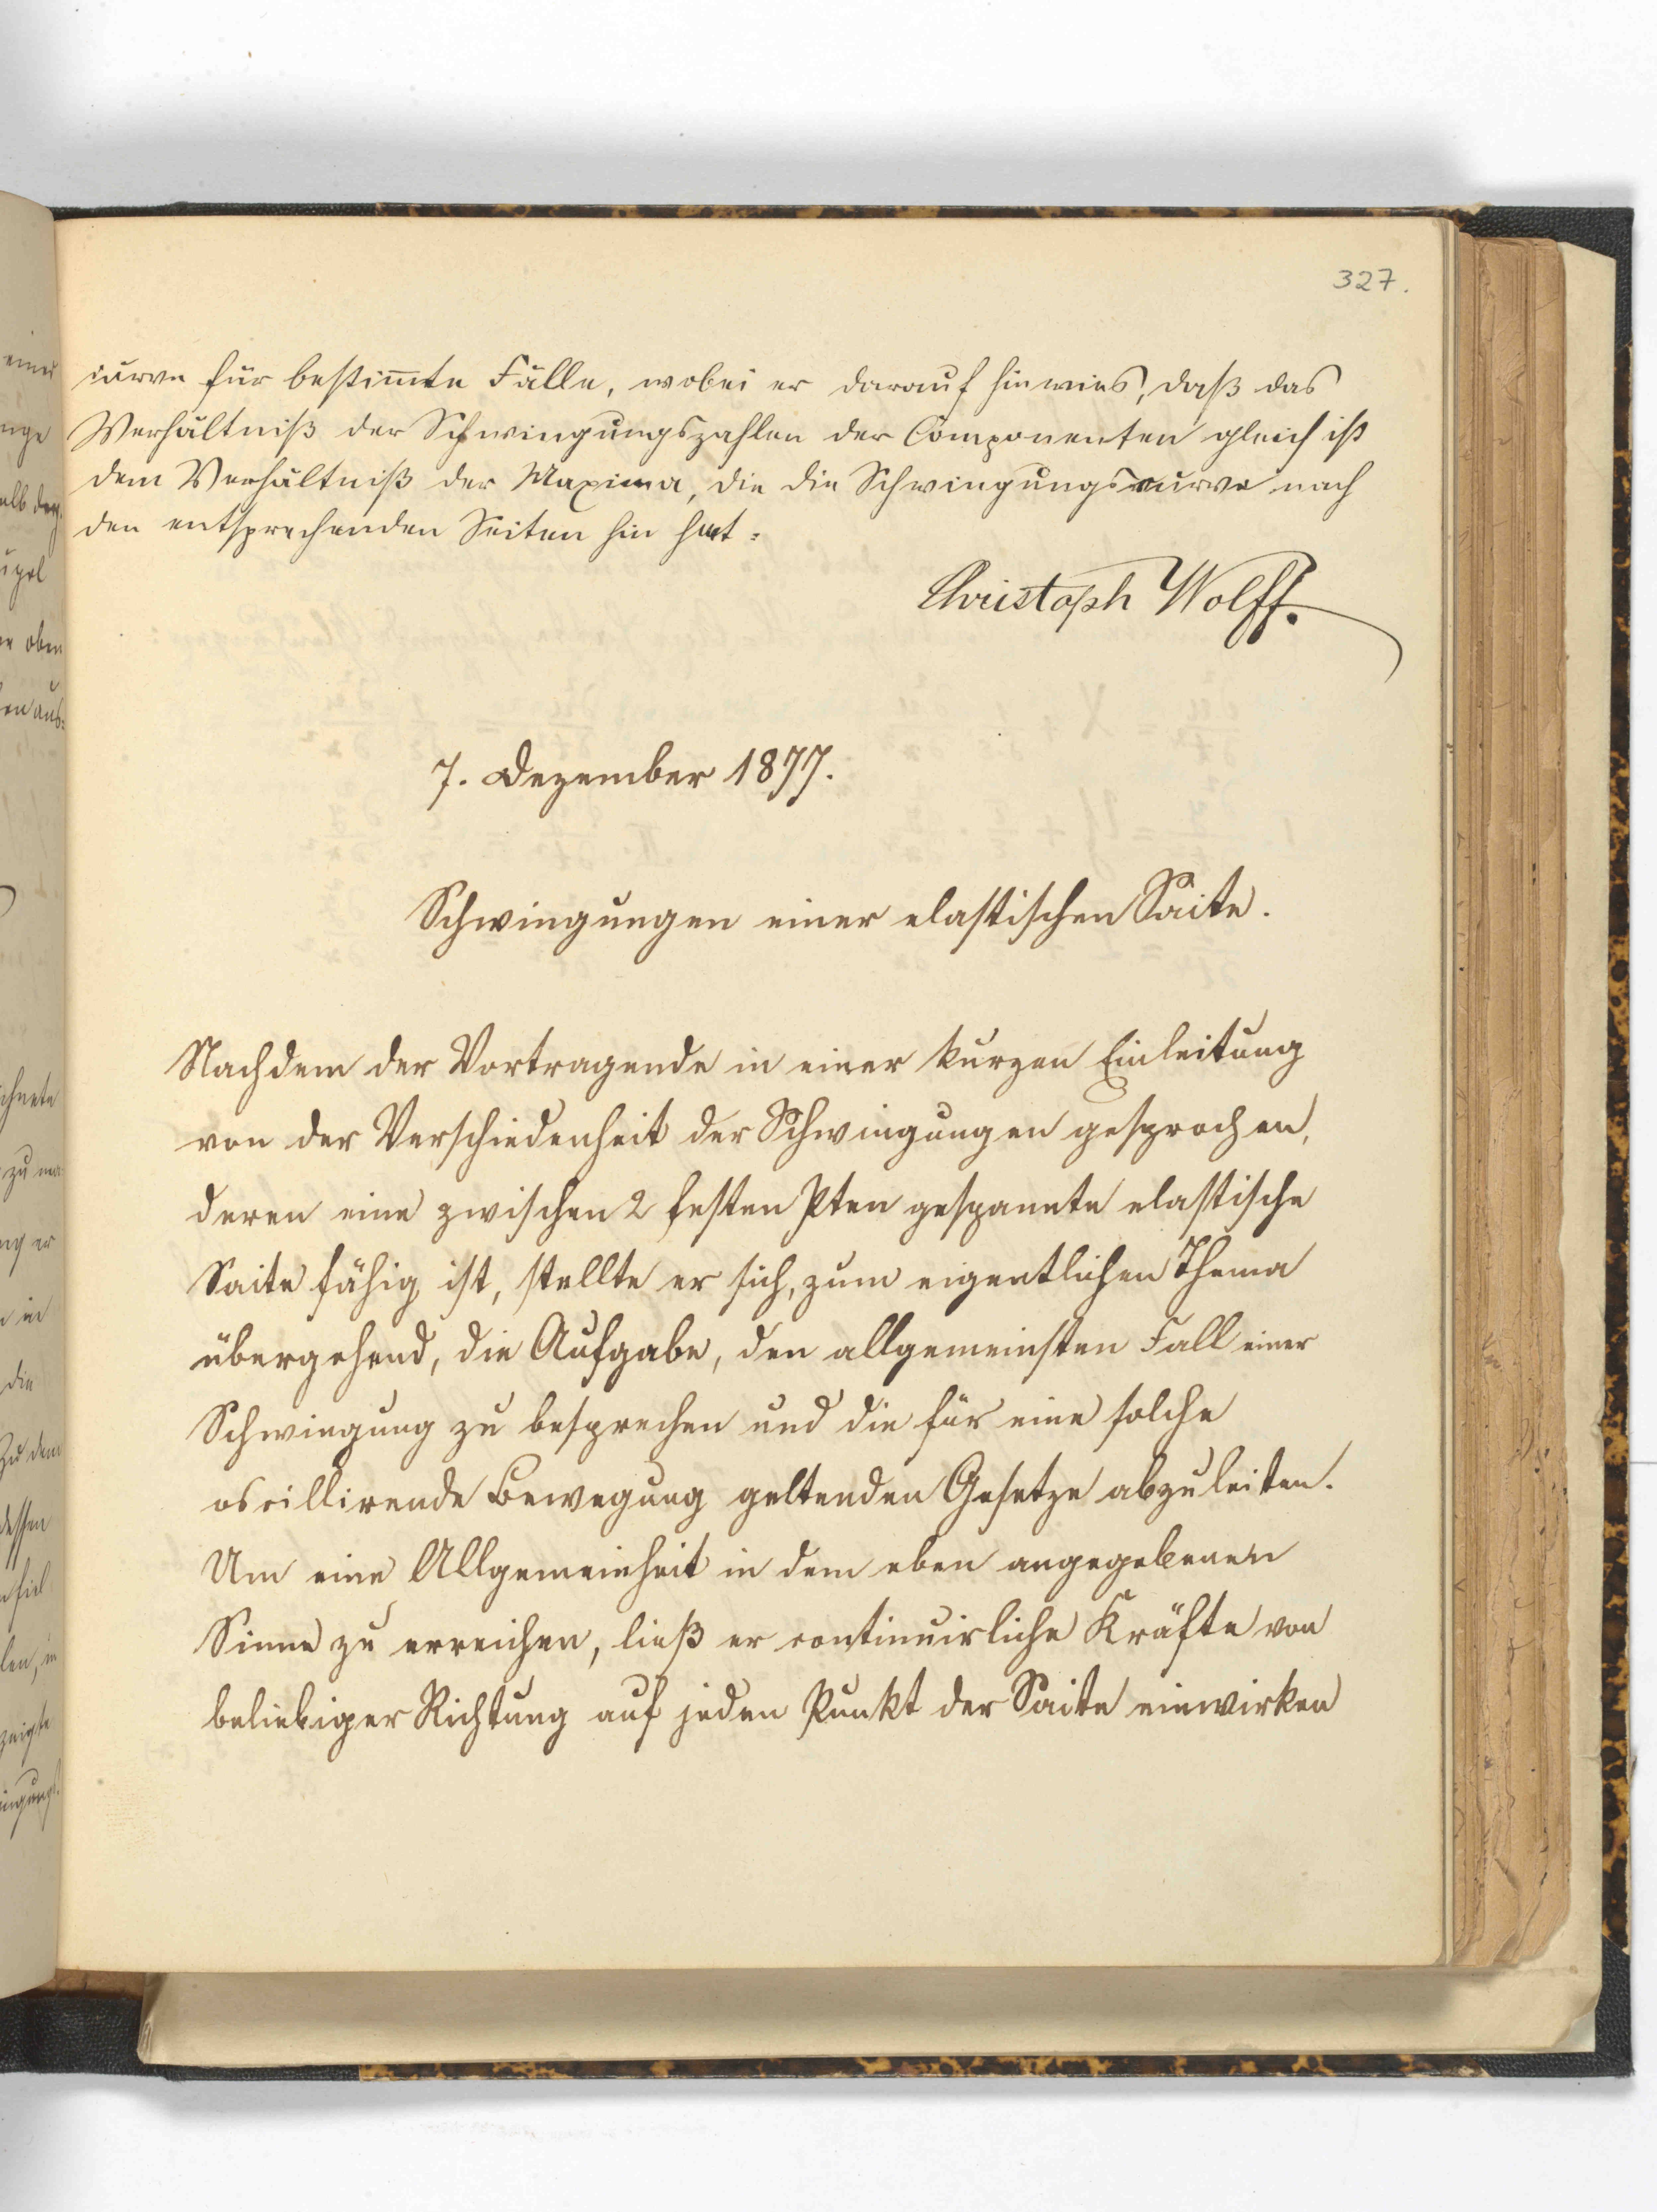 327.
curve für bestimmte Fälle, wobei er darauf hinwies, daß das
Verhältniß der Schwingungszahlen der Componenten gleich ist
dem Verhältniß der Maxima, die die Schwingungscurve nach
den entsprechenden Seiten hin hat.
Christoph Wolff.
7. Dezember 1877.
Schwingungen einer elastischen Saite.
Nachdem der Vortragende in einer kurzen Einleitung
von der Verschiedenheit der Schwingungen gesprochen,
deren eine zwischen 2 festen Pten gespannte elastische
Saite fähig ist, stellte er sich, zum eigentlichen Thema
übergehend, die Aufgabe, den allgemeinsten Fall einer
Schwingung zu besprechen und die für eine solche
oscillirende Bewegung geltenden Gesetze abzuleiten.
Um eine Allgemeinheit in dem eben angegebenen
Sinne zu erreichen, ließ er continuirliche Kräfte von
beliebiger Richtung auf jeden Punkt der Saite einwirken